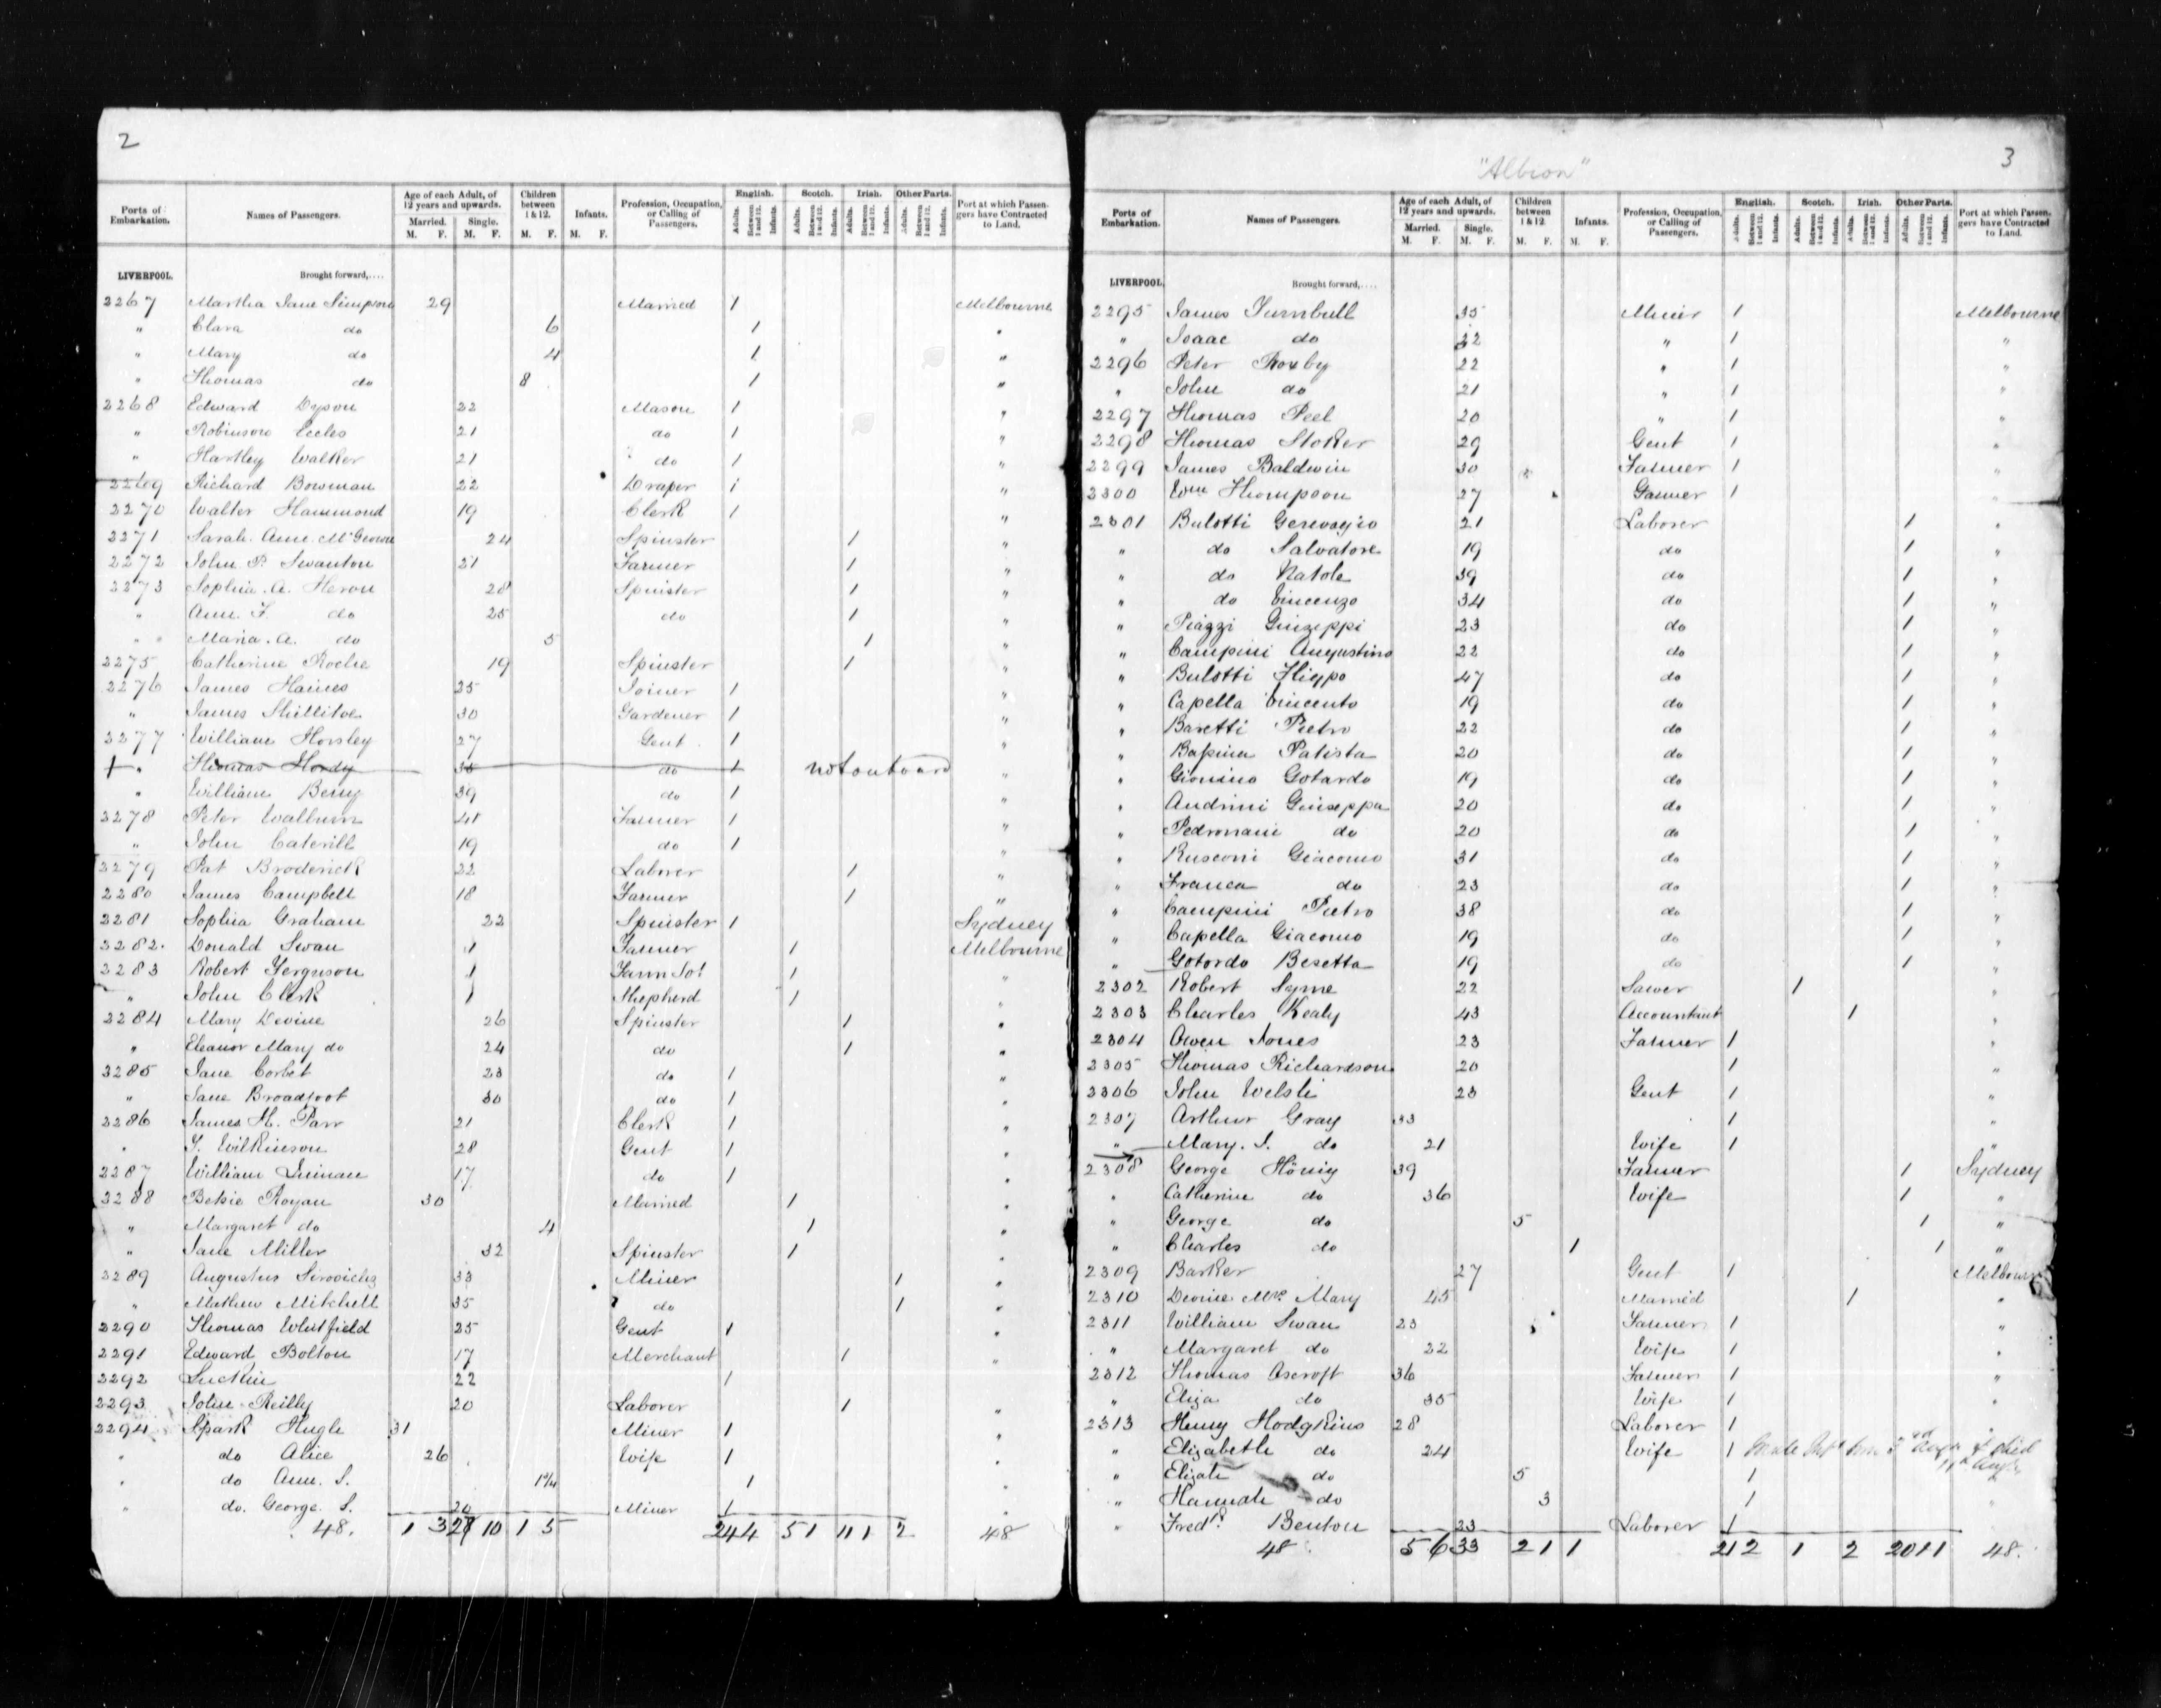 2
Ports of Embarkation. Names of Passengers. Age of each Adult, of 12 years and upwards. Married. M. F. Single. M. F. Children between 1 & 12. M. F. Infants. M. F. Profession, Occupation, or Calling of Passengers. English. Adults. Between 1 and 12. Infants. Scotch. Adults. Between 1 and 12. Infants. Irish. Adults. Between 1 and 12. Infants. Other Parts. Adults. Between 1 and 12. Infants. Port at which Passengers have Contracted to Land.
LIVERPOOL. Brought forward,....
2267 Martha Jane Simpson 29 Married 1 Melbourne
" Clara do 6 1 "
" Mary do 4 1 "
" Thomas do 8 1 "
2268 Edward Dyson 22 Mason 1 "
" Robinson Eccles 21 do 1 "
" Hartley Walker 21 do 1 "
2269 Richard Bowman 22 Draper 1 "
2270 Walter Hammond 19 Clerk 1 "
2271 Sarah Ann 24 Spinster 1 "
2272 John P. Swanton 21 Farmer 1 "
2273 Sophia A. Heron 28 Spinster 1 "
" Ann F. do 25 do 1 "
" " Maria A. do 5 1 "
2275 Catherine Roche 19 Spinster 1 "
2276 James Haines 25 Joiner 1 "
" James Shillitoe 30 Gardener 1 "
2277 William Horsley 27 Gent 1 "
+ " Thomas Hordy do 1 not on board "
" William Berry 39 do 1 "
2278 Peter Farmer 1 "
" John Caterill 19 do 1 "
2279 Pat Broderick 22 Laborer 1 "
2280 James Campbell 18 Farmer 1 "
2281 Sophia Graham 22 Spinster 1 Sydney
2282 Donald Swan 1 Farmer 1 Melbourne
2283 Robert Ferguson 1 1 "
" John Clerk 1 Shepherd 1 "
2284 Mary Devine 26 Spinster 1 "
" Eleanor Mary do 24 do 1 "
2285 Jane Corbet 23 do 1 "
" Jane Broadfoot 30 do 1 "
2286 James H. Parr 21 Clerk 1 "
" Wilkinson 28 Gent 1 "
2287 William 17 do 1 "
2288 Betsie Royan 30 Married 1 "
" Margaret do 4 1 "
" Jane Miller 32 Spinster 1 "
2289 Augustus 33 Miner 1 "
" Mathew Mitchell 35 do 1 "
2290 Thomas Whitfield 25 Gent 1 "
2291 Edward Bolton 17 Merchant 1 "
2292 22 1
2293 John Reilly 20 Laborer 1 "
2294 Spark Hugh 31 Miner 1 "
" do Alice 26 Wife 1 "
" do Ann. S. 1¾ 1 "
" do. George. S. 20 Miner 1 "
48. 1 3 10 1 5 244 51 11 1 2 48
"Albion" 3
Ports of Embarkation. Names of Passengers. Age of each Adult, of 12 years and upwards. Married. M. F. Single. M. F. Children between 1 & 12. M. F. Infants. M. F. Profession, Occupation, or Calling of Passengers. English. Adults. Between 1 and 12. Infants. Scotch. Adults. Between 1 and 12. Infants. Irish. Adults. Between 1 and 12. Infants. Other Parts. Adults. Between 1 and 12. Infants. Port at which Passengers have Contracted to Land.
LIVERPOOL. Brought forward,....
2295 James Turnbull 35 Miner 1 Melbourne
" Isaac do 22 " 1 "
2296 Peter Foxby 22 " 1 "
" John do 21 " 1 "
2297 Thomas Peel 20 " 1 "
2298 Thomas Stoker 29 Gent 1 "
2299 James Baldwin 30 Farmer 1 "
2300 Wm Thompson 27 1 "
2301 Bulotti 21 Laborer 1 "
" do Salvatore 19 do 1 "
" do Natole 39 do 1 "
" do Vincenzo 34 do 1 "
" Piazzi Giuzeppi 23 do 1 "
" Campini Augustino 22 do 1 "
" Bulotti 47 do 1 "
" Capella Vincento 19 do 1 "
" Baretti Pietro 22 do 1 "
" Patista 20 do 1 "
" Gionino Gotardo 19 do 1 "
" Andrini Giuseppa 20 do 1 "
" Pedronani do 20 do 1 "
" Rusconi Giacomo 31 do 1 "
" Franca do 23 do 1 "
" Campini Pietro 38 do 1 "
" Capella Giacomo 19 do 1 "
" Gotordo Besetta 19 do 1 "
2302 Robert Syme 22 Sawer 1 "
2303 Charles Kealy 43 Accountant 1 "
2304 Owen Jones 23 Farmer 1 "
2305 Thomas Richardson 20 1 "
2306 John Welsh 23 Gent 1 "
2307 Arthur Gray 33 1 "
" Mary. S. do 21 Wife 1 "
2308 George Hönig 39 Farmer 1 Sydney
" Catherine do 36 Wife 1 "
" George do 5 1 "
" Charles do 1 1 "
2309 Barker 27 Gent 1 Melbourne
2310 Devine Mrs Mary 45 Married 1 "
2311 William Swan 23 Farmer 1 "
" Margaret do 22 Wife 1 "
2312 Thomas Ascroft 36 Farmer 1 "
" Eliza do 35 Wife 1 "
2313 Henry Hodgkins 28 Laborer 1 "
" Elizabeth do 24 Wife 1 Male Inft born 3rd Augt & died 11th Augt
" Elizah do 5 1
" Hannah do 3 1 "
" Fredk Benton 23 Laborer 1
48 5 6 33 2 1 1 21 2 1 2 20 1 1 48.